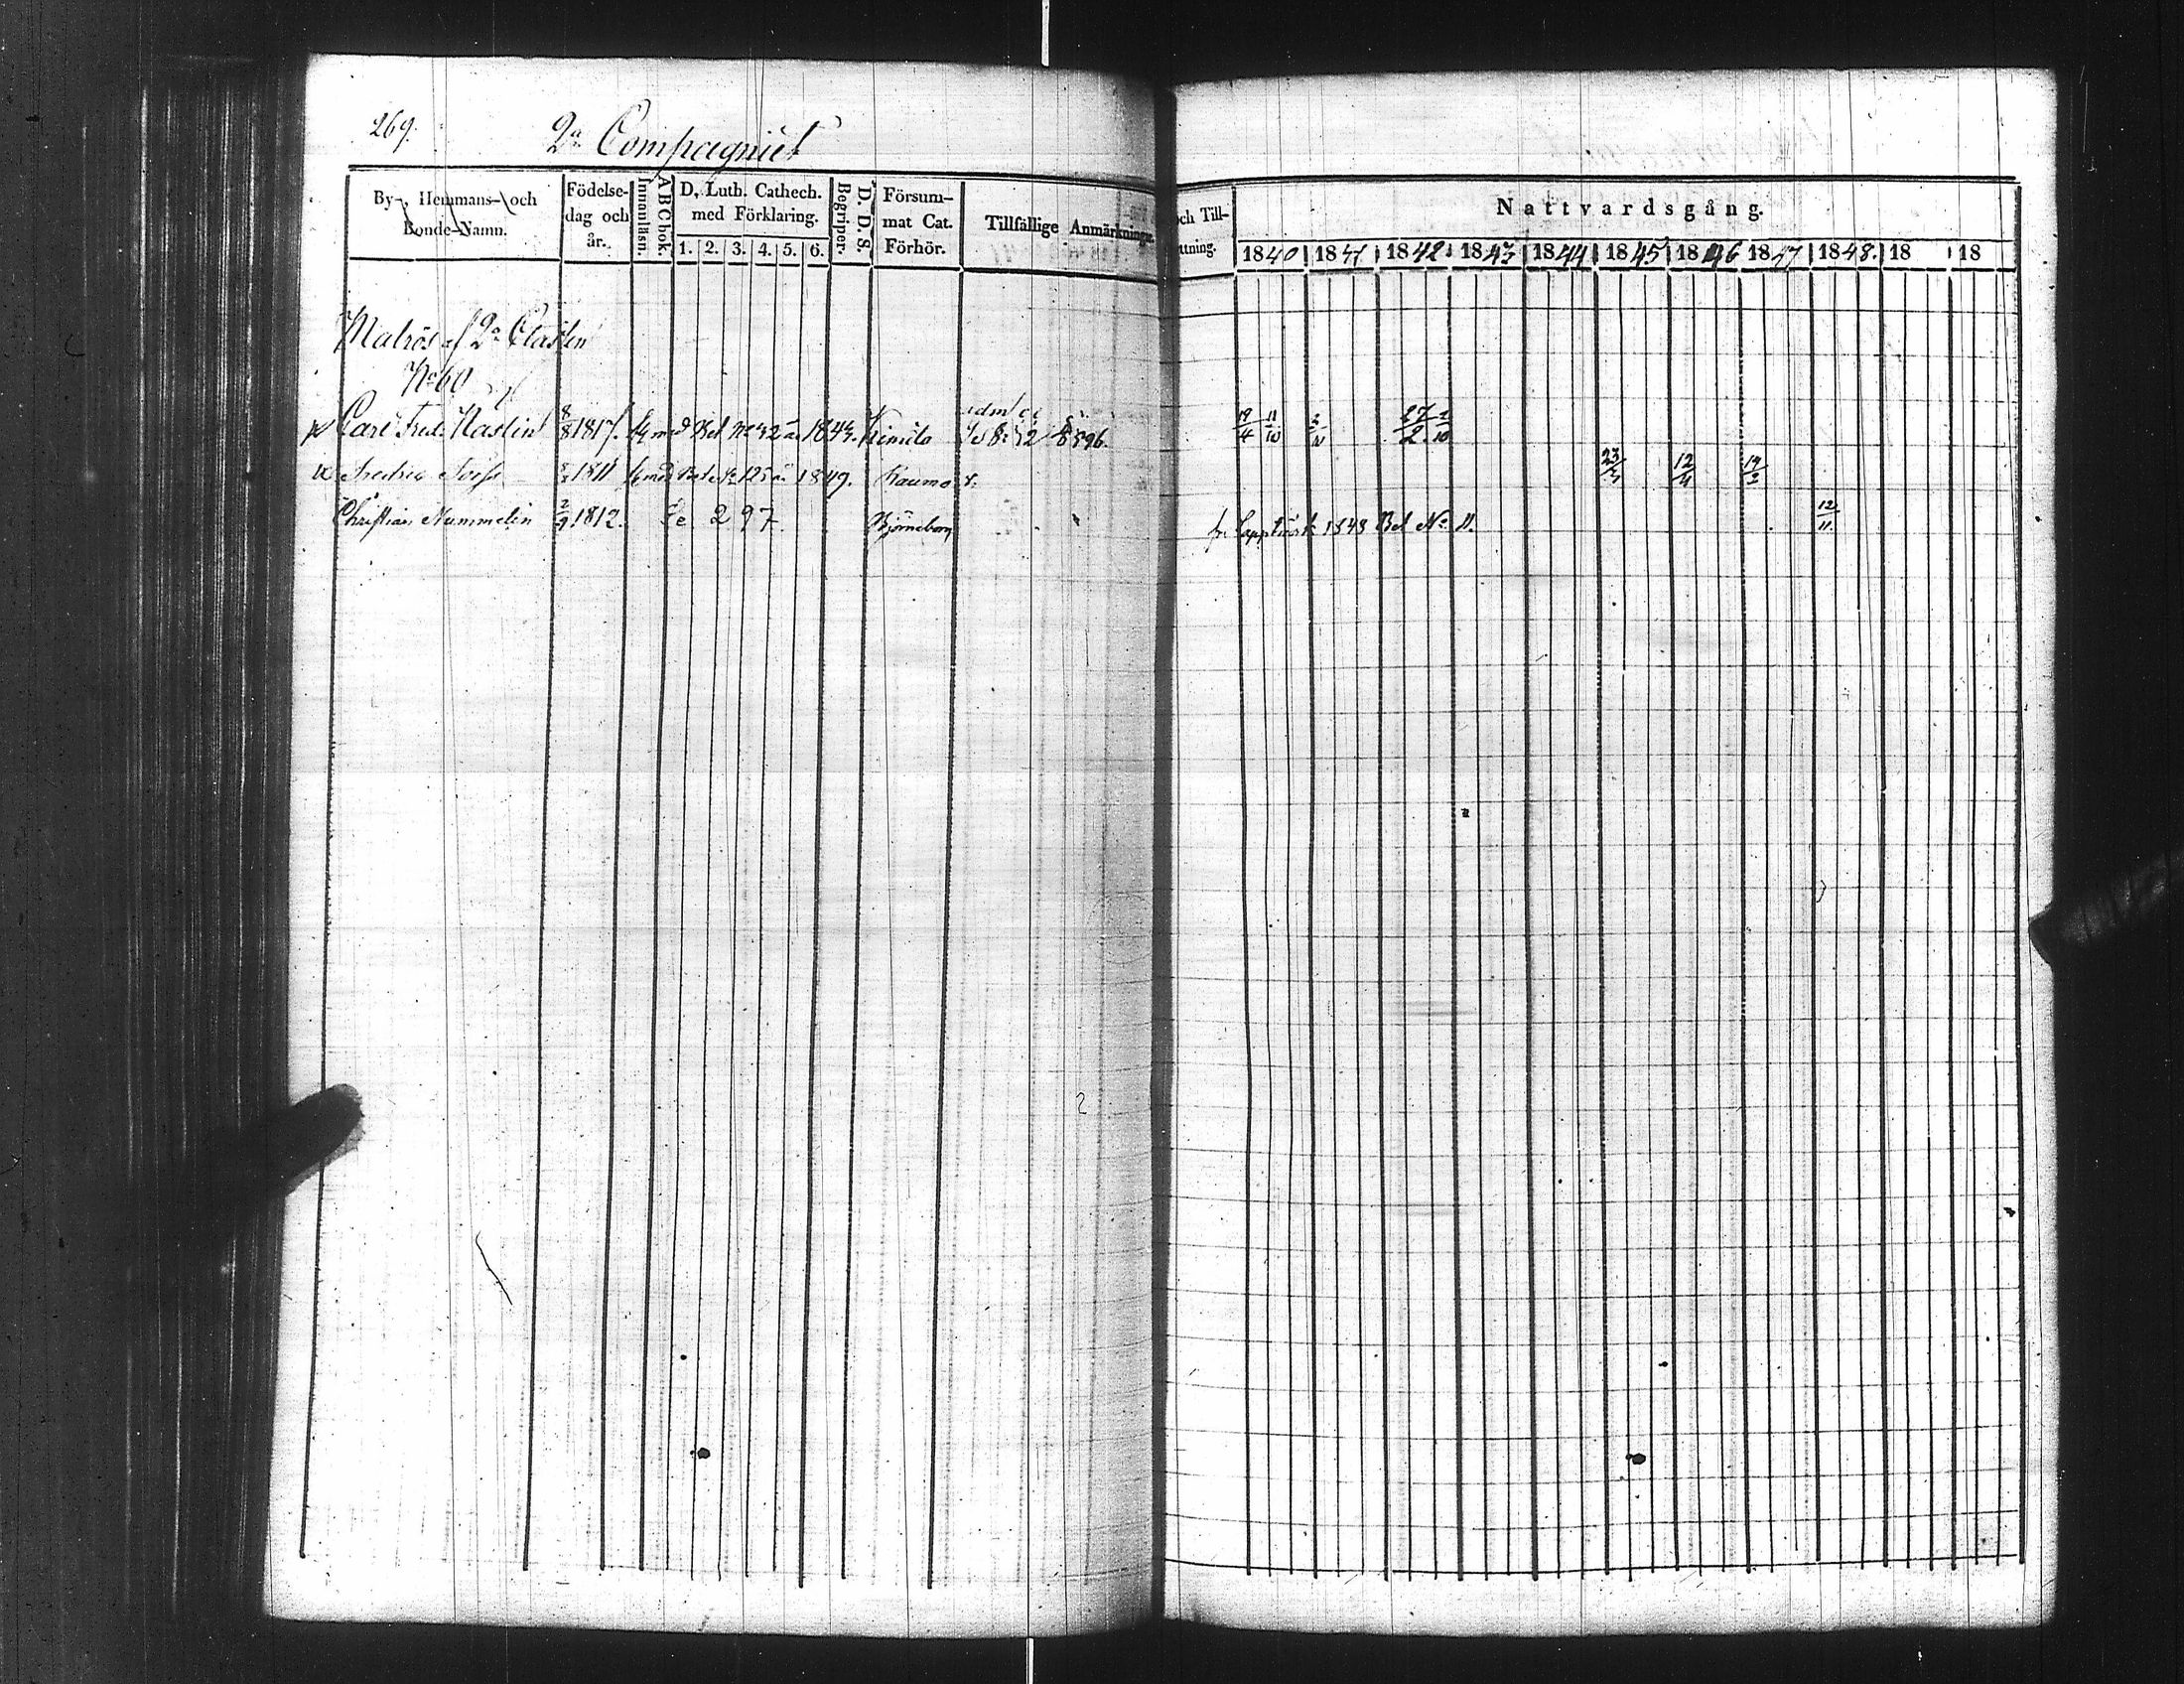 269.
2a Compagniet
By-, Hemmans- och Bonde-Namn.
Födelse-dag och år.
Innanläsn.
ABC bok.
D. Luth. Cathech. med Förklaring.
1. 2. 3. 4. 5. 6.
Begriper.
D. D. S.
Försum-mat Cat. Förhör.
Tillfällige Anmärkningar
och Till-
ttning.
Nattvardsgång.
1840 1841 1842 1843 1844 1845 1846 1847 1848. 18 18
Matros af 2a Classen
No 60
Carl Fred. Naslin 8/8 1817. med Bet No 42 1844. Kimito 19/4 11/10 27/2 2/10
Fredric 1811 med Bet No 125 1849. Raumo 23/3 12/4 19/2
Christian Nummelin 2/9 1812. Se 297. Björneborg fr. 1848 Bet No 11. 12/11.